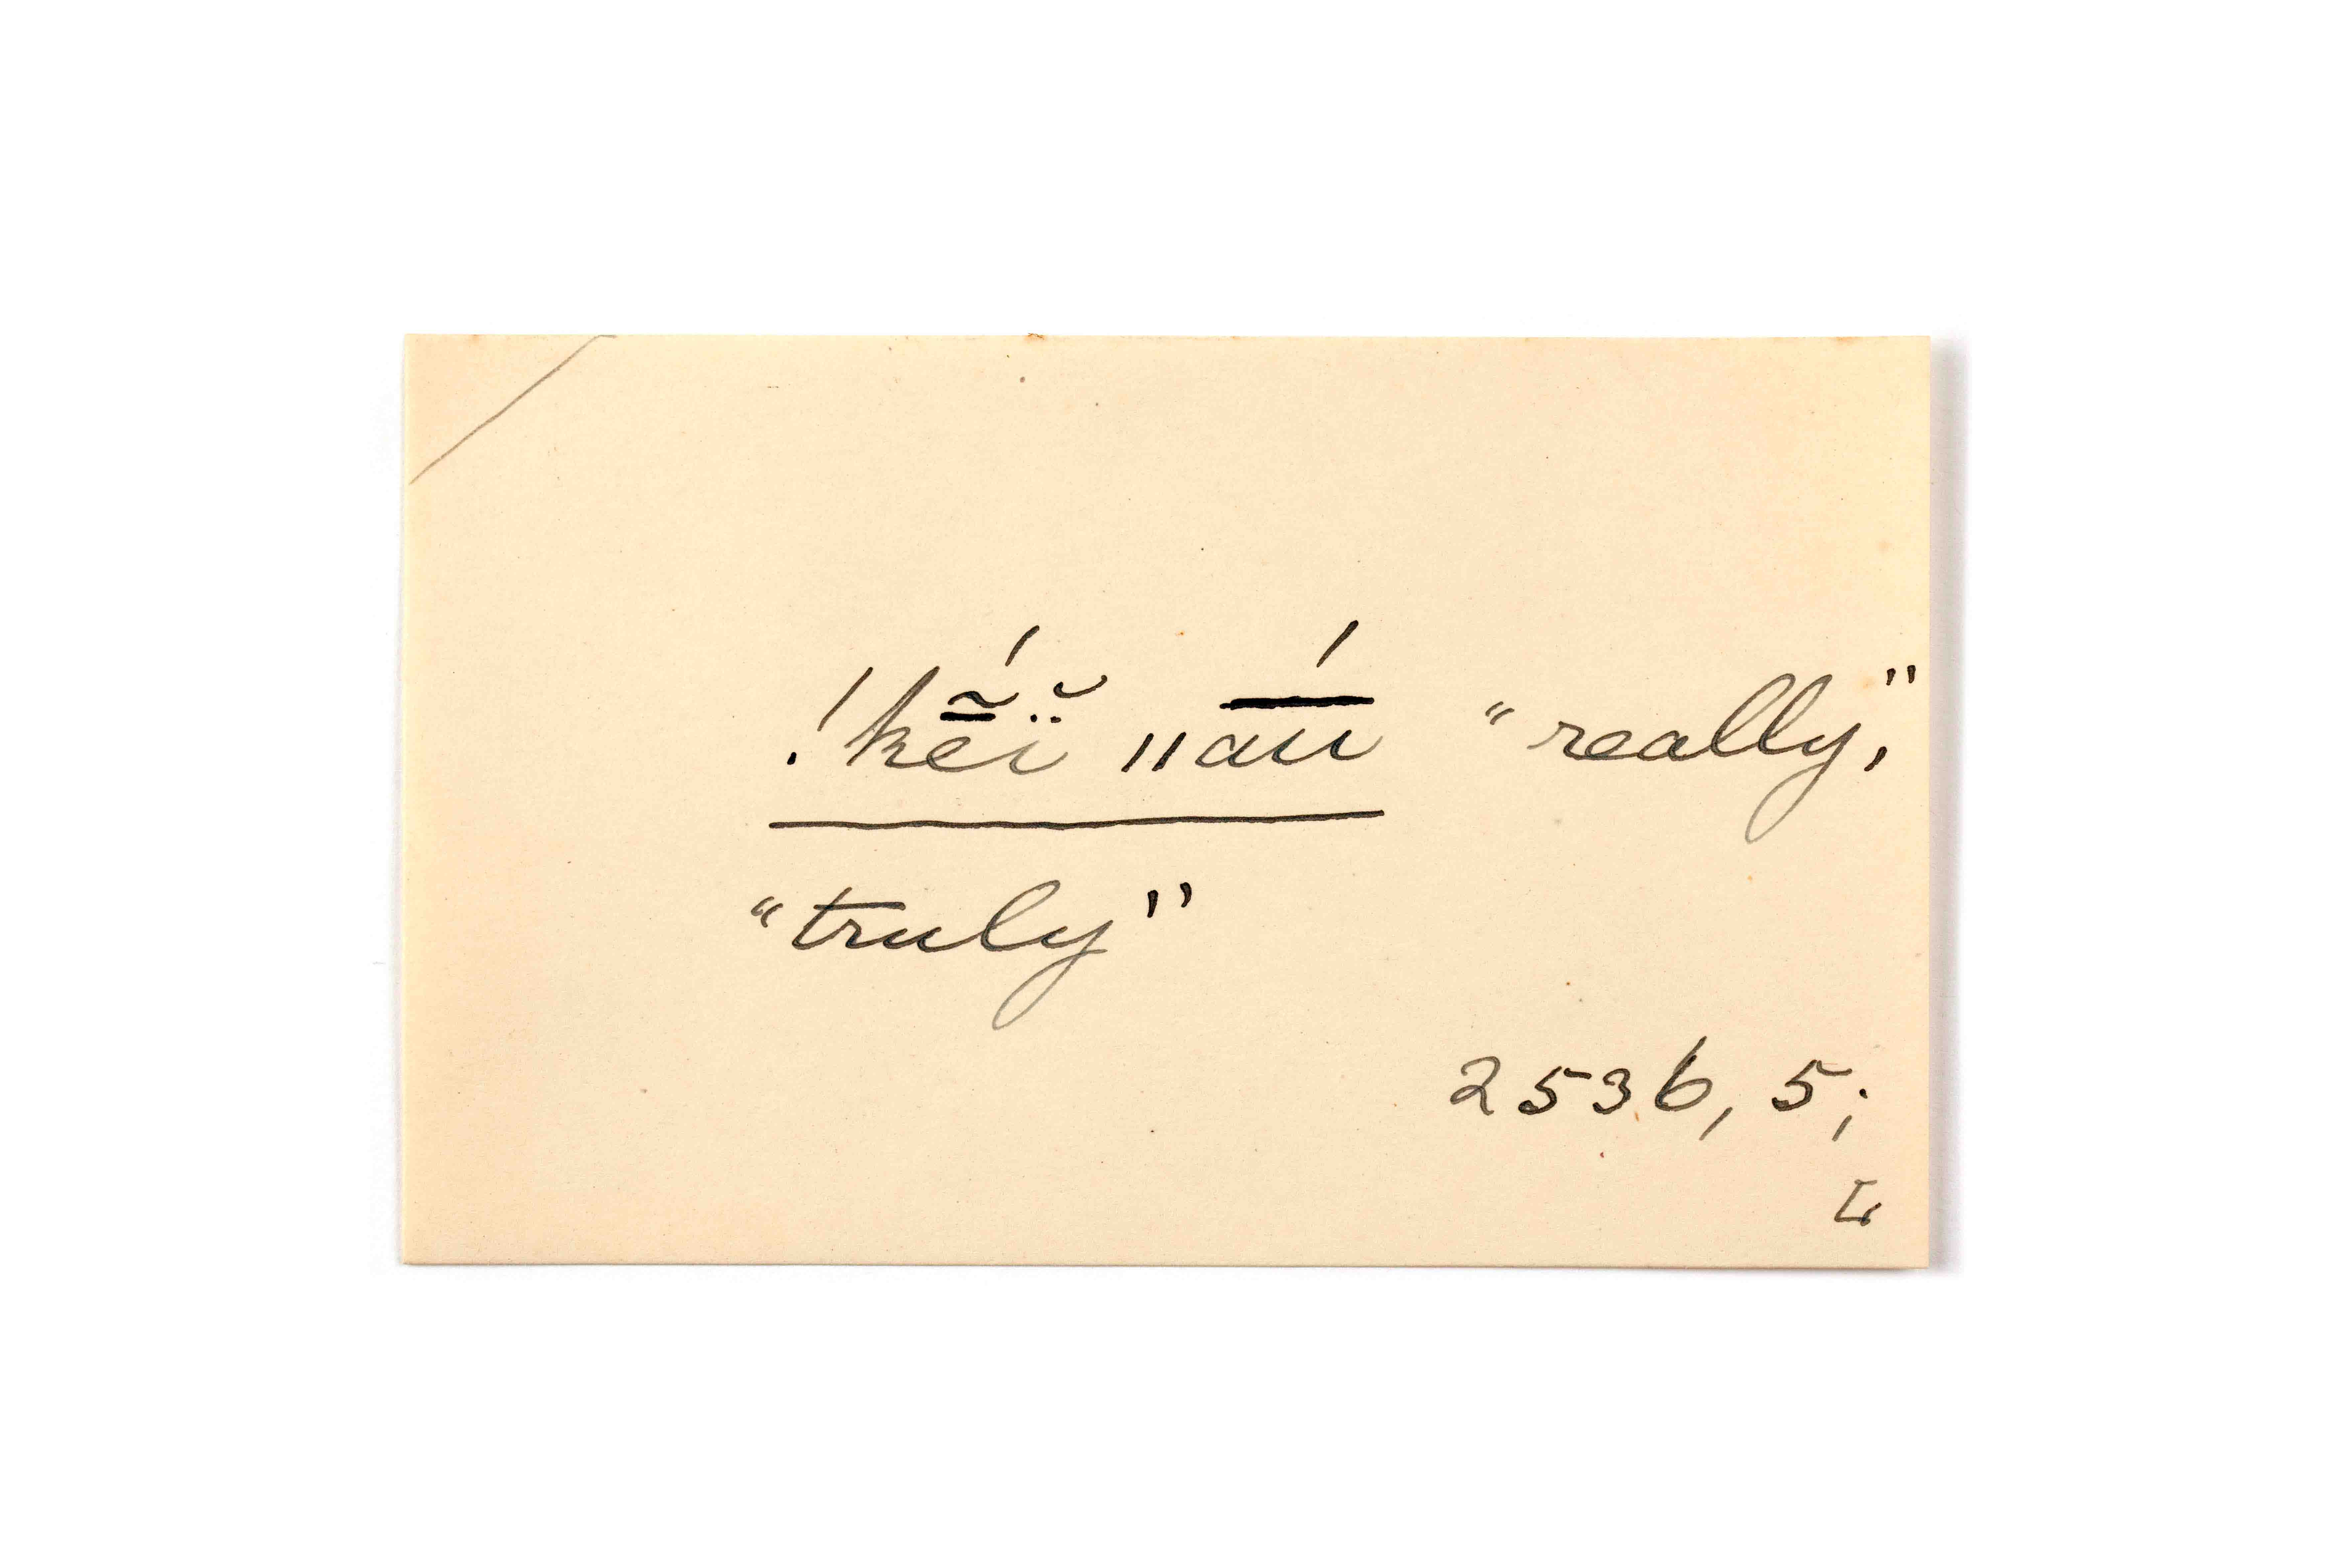 !kē̃́ĭ̈ ǁa͞ú "really,"
"truly"
2536, 5;
L